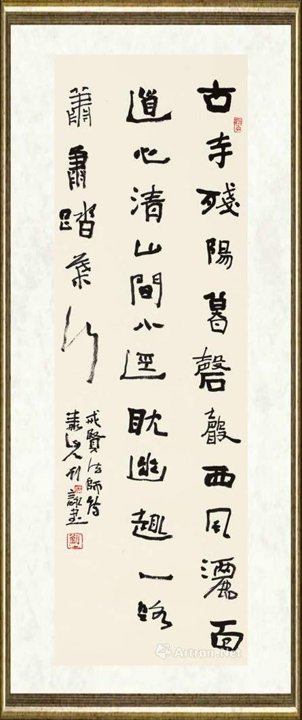 古寺殘陽暮磬聲西風灑面
道心清山間小逕耽幽趣一路
蕭蕭踏葉行
戒賢法師詩
Artron.Net